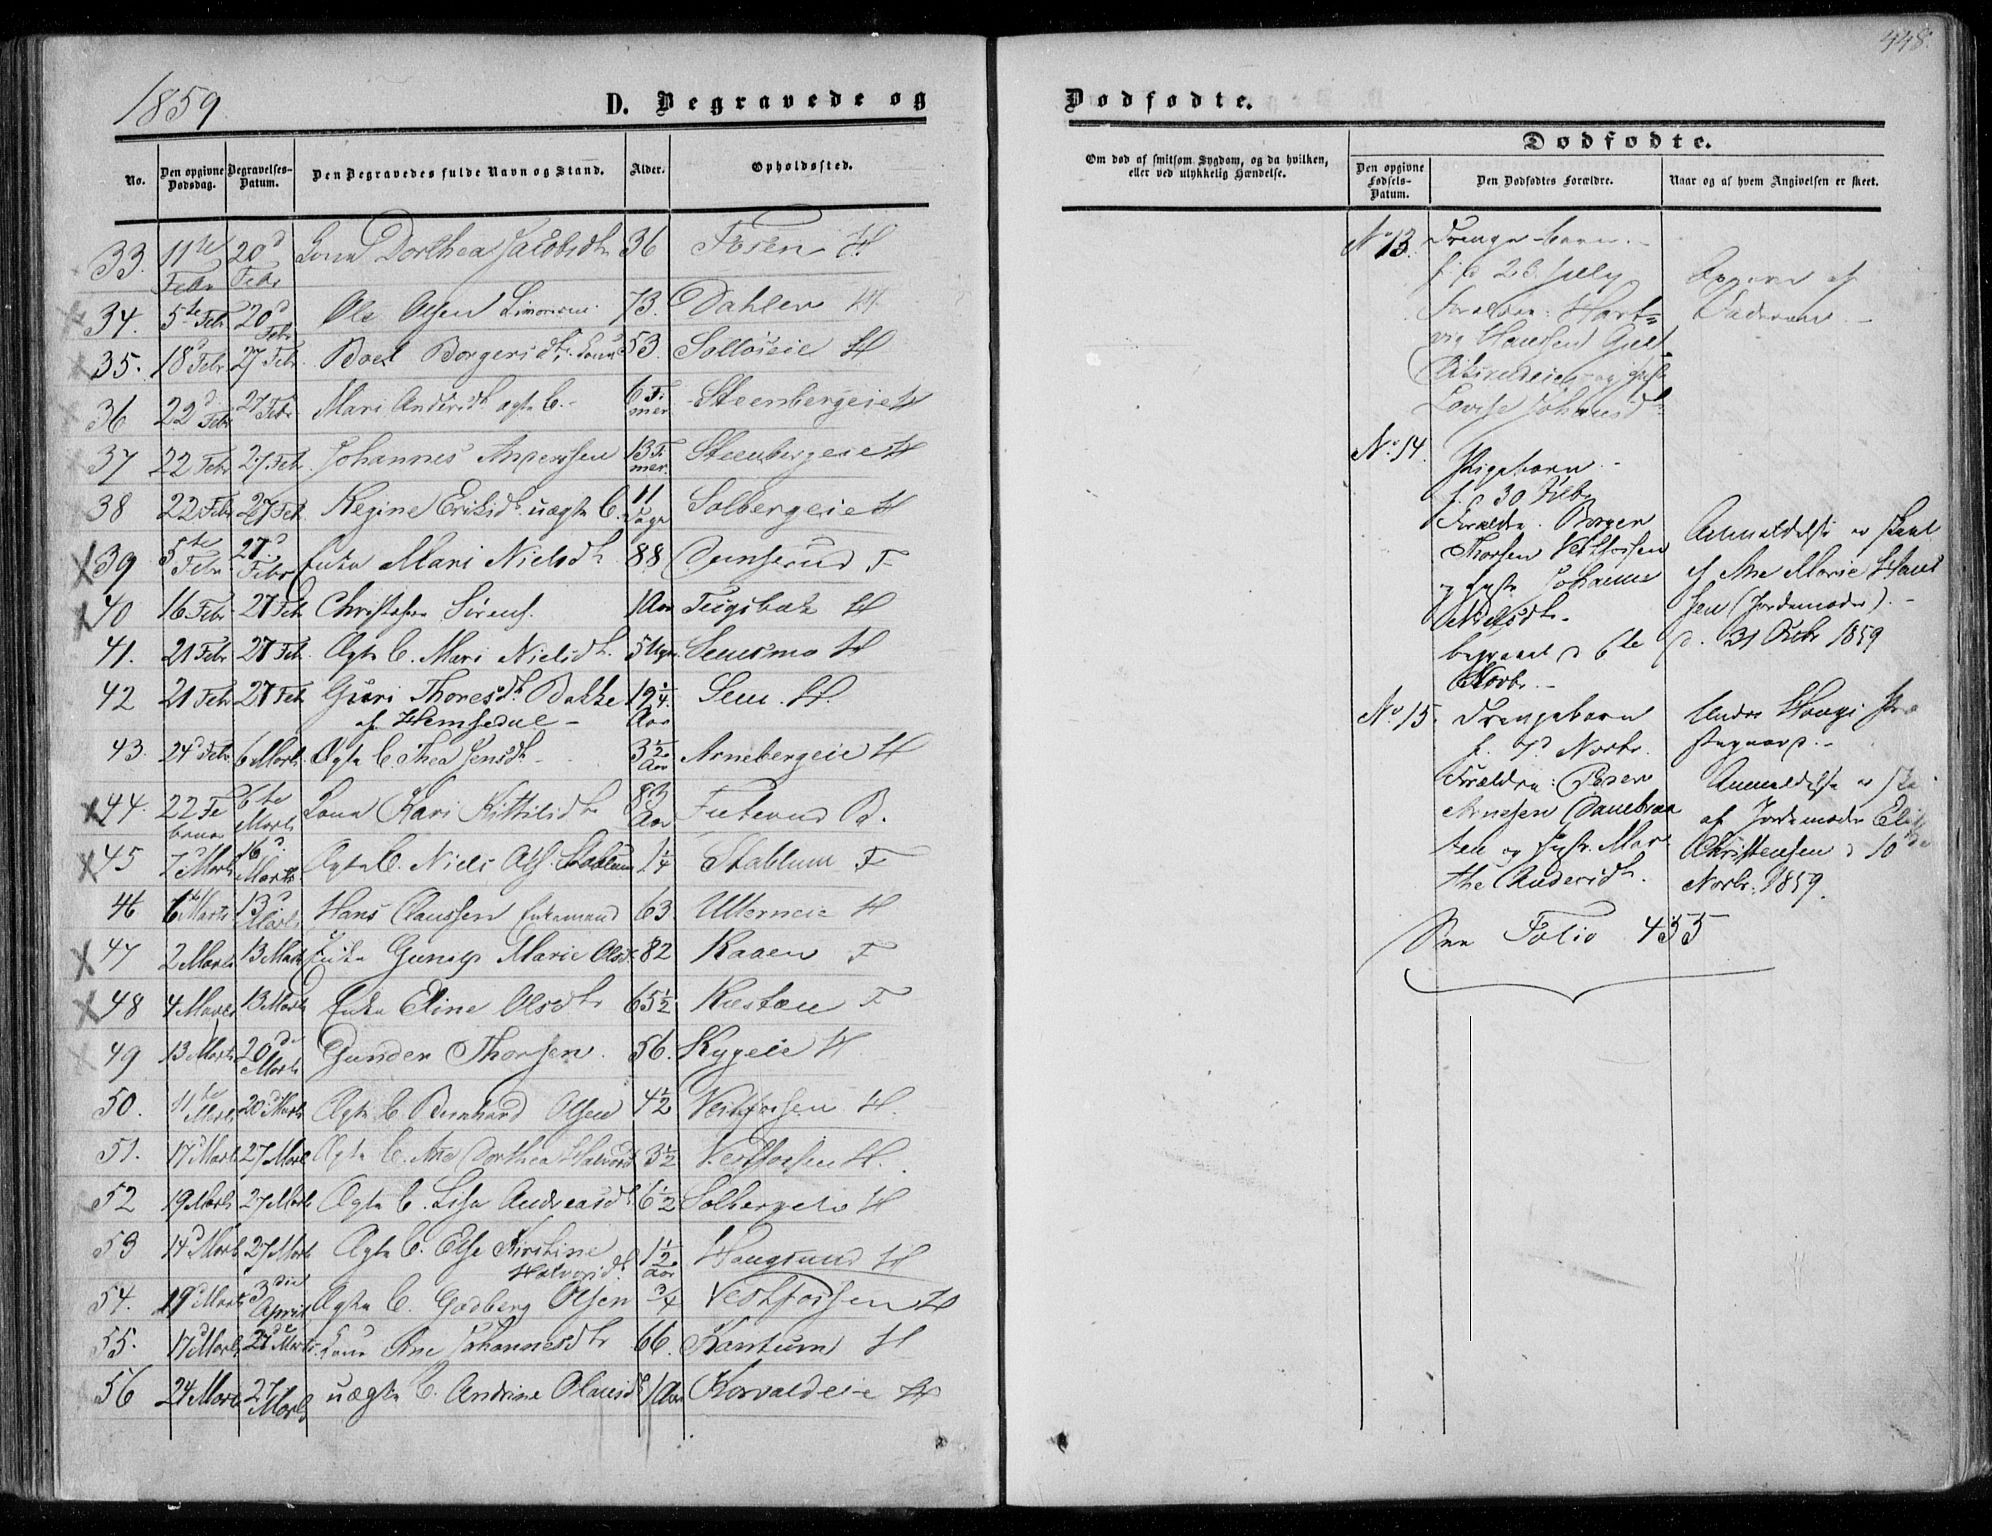 448.
1859.
D. Begravede og
Dødfødte.
No.
Den opgivne Dødsdag.
Begravelses-Datum.
Den Begravedes fulde Navn og Stand.
Alder.
Opholdssted.
33. 11te Febr 20d Febr Kona Dorthea Jacobsdtr 36 Fosen H
34. 5te Febr 20d Febr Ole Olsen 73. Dahlen H.
35. 18d Febr 27 Febr Boel Borgersdtr. Kona 53. Solløseie H
36 22d Febr 27 Febr Mari Andersdtr ægte B. 6 Timer Steenbergeie H
37 22 Febr 27 Feb. Johannes Anderssen 13 Timer Steenbergeie H
38 22 Febr 27 Feb. Regine Eriksdtr. uægte B. 11 Dage Solbergeie H
39 5te Febr 27d Febr Enke Mari Nielsdtr 88 F
40 16 Febr 27 Feb Christofer Sørens. 1 Aar H
41. 21 Febr 27 Feb. Ægte B. Mari Nielsdtr. 5 Uger Semsmo H
42 21 Febr 27 Feb Guri Thoresdtr Bakke 19 1/4 Aar Sem. H.
af Hemsedal -
43. 24d Febr 6 Marts Ægte B. Thea Jensdtr - 3 1/2 Aar Arnebergeie H
44. 22 Februar 6te Marts Kona Kari Kittilsdtr Aar B.
45 7d Marts 16d Marts Ægte B. Niels Ols. Stablum 1 1/4 Stablum F
46 6te Marts 13d Marts Hans Claussen Enkemand 63. Ulverneie H
47 2 Marts 13 Marts Enke Marie Olsd. 82 Kaaen F
48 4 Marts 13 Marts Enke Eline Olsdtr 65 1/2 F
49 13 Marts 20de Marts Gunder Thorsen. 56. Rygeie H
50. 11te Marts 20d Marts Ægte B Bernhard Olsen 4 1/2 Vestfossen H.
51. 17d Marts 27 Marts Ægte B. Ane Dorthea Halvorsd 3 1/2 Vestfossen H.
52 19 Marts 27 Marts Ægte B. Lisa Andreasdtr 6 1/2 Solbergelv H
53 14d Marts 27 Marts Ægte B. Else Kirstine 1 1/2 Aar Haugsund H
Halvorsdtr.
54. 19d Marts 3die April Ægte B. Gudberg Olsen 3/4 Vestfossen H
55. 17d Marts 27de Marts Kona Ane Johannesdtr 66. Kantum H
56 24 Marts 27 Marts uægte B. Andrine Olausdtr 1 Aar Korvaldeie H
Om død af smitsom Sygdom, og da hvilken,
eller ved ulykkelig Hændelse.
Dødfødte.
Den opgivne Fødsels-Datum.
Den Dødfødtes Forældre.
Naar og af hvem Angivelsen er skeet.
No 13. Drengebarn. -
f. d 26 July
Forældre: Hart=
vig Hanssen
og Hustr
Lovise Johansdtr
af
Faderen -
No 14. Pigebarn. -
f. d 30 Octbr
Forældre. Borger
Thorsen Vestfossen
og Hustr Johanne
Nielsdtr.
begravet d 6te
Novbr. -
Anmeldelse er skeet
af Ane Marie Hans
sen (Jordemoder). -
d. 31 Octbr 1859
No 15. Drengebarn
f. 7d Novbr.
Forældre: Peder
Arnesen
og Hustr. Mar
the Andersdtr.
Anmeldelse er skeet
af Jordemoder
Christensen d 10de
Novbr. 1859.
See Folio 455